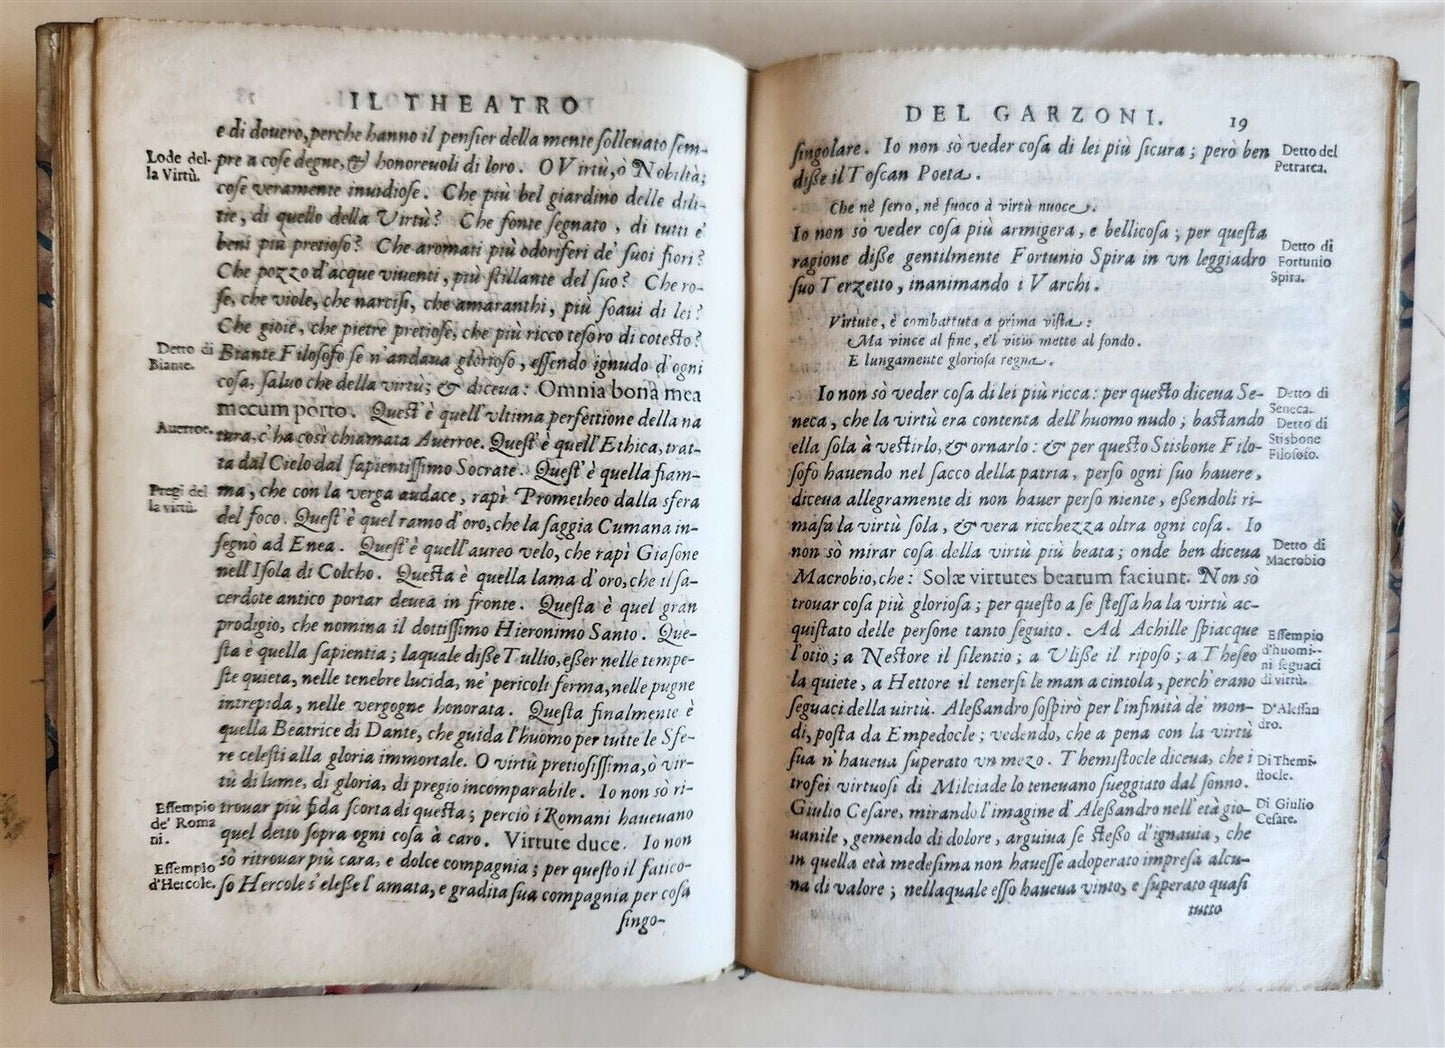 IL THEATRO
e di douero, perche hanno il pensier della mente solleuato sem-
pre a cose degne, & honoreuoli di loro. O Virtù, ò Nobiltà;
cose veramente inuidiose. Che più bel giardino delle deli-
tie, di quello della Virtù? Che fonte segnato, di tutti e'
beni più pretioso? Che aromati più odoriferi de' suoi fiori?
Che pozzo d'acque viuenti, più stillante del suo? Che ro-
se, che viole, che narcisi, che amaranthi, più soaui di lei?
Che gioie, che pietre pretiose, che più ricco tesoro di cotesto?
Biante Filosofo se n'andaua glorioso, essendo ignudo d'ogni
cosa, saluo che della virtù; & diceua: Omnia bona mea
mecum porto. Quest'è quell'vltima perfettione della na
tura, c'ha così chiamata Auerroe. Quest'è quell'Ethica, trat-
ta dal Cielo dal sapientissimo Socrate. Quest'è quella fiam-
ma, che con la verga audace, rapì Prometheo dalla sfera
del foco. Quest'è quel ramo d'oro, che la saggia Cumana in-
segnò ad Enea. Quest'è quell'aureo velo, che rapì Giasone
nell'Isola di Colcho. Questa è quella lama d'oro, che il sa-
cerdote antico portar deuea in fronte. Questa è quel gran
prodigio, che nomina il dottissimo Hieronimo Santo. Que-
sta è quella sapientia; laquale disse Tullio, esser nelle tempe-
ste quieta, nelle tenebre lucida, ne' pericoli ferma, nelle pugne
intrepida, nelle vergogne honorata. Questa finalmente è
quella Beatrice di Dante, che guida l'huomo per tutte le Sfe-
re celesti alla gloria immortale. O virtù pretiosissima, ò vir-
tù di lume, di gloria, di pregio incomparabile. Io non sò ri-
trouar più fida scorta di questa; perciò i Romani haueuano
quel detto sopra ogni cosa à caro. Virtute duce. Io non
sò ritrouar più cara, e dolce compagnia; per questo il fatico-
so Hercole s'elesse l'amata, e gradita sua compagnia per cosa
singo-
Lode del-
la Virtù.
Detto di
Biante.
Auerroe.
Pregi del
la virtù.
Essempio
de' Roma
ni.
Essempio
d'Hercole.
DEL GARZONI. 19
singolare. Io non sò veder cosa di lei più sicura; però ben
disse il Toscan Poeta.
Che nè ferro, nè fuoco à virtù nuoce.
Io non sò veder cosa più armigera, e bellicosa; per questa
ragione disse gentilmente Fortunio Spira in vn leggiadro
suo Terzetto, inanimando i Varchi.
Virtute, è combattuta a prima vista;
Ma vince al fine, e'l vitio mette al fondo.
E lungamente gloriosa regna.
Io non sò veder cosa di lei più ricca: per questo diceua Se-
neca, che la virtù era contenta dell'huomo nudo; bastando
ella sola à vestirlo, & ornarlo: & per questo Stisbone Filo-
sofo hauendo nel sacco della patria, perso ogni suo hauere,
diceua allegramente di non hauer perso niente, essendoli ri-
masa la virtù sola, & vera ricchezza oltra ogni cosa. Io
non sò mirar cosa della virtù più beata; onde ben diceua
Macrobio, che: Solæ virtutes beatum faciunt. Non sò
trouar cosa più gloriosa; per questo a se stessa ha la virtù ac-
quistato delle persone tanto seguito. Ad Achille spiacque
l'otio; a Nestore il silentio; a Ulisse il riposo; a Theseo
la quiete, a Hettore il tenersi le man a cintola, perch'erano
seguaci della uirtù. Alessandro sospirò per l'infinità de' mon-
di, posta da Empedocle; vedendo, che a pena con la virtù
sua n'haueua superato vn mezo. Themistocle diceua, che i
trofei virtuosi di Milciade lo teneuano sueggiato dal sonno.
Giulio Cesare, mirando l'imagine d'Alessandro nell'età gio-
uanile, gemendo di dolore, arguiua se stesso d'ignauia, che
in quella età medesima non hauesse adoperato impresa alcu-
na di valore; nellaquale esso haueua vinto, e superato quasi
tutto
Detto del
Petrarca.
Detto di
Fortunio
Spira.
Detto di
Seneca.
Detto di
Stisbone
Filosofo.
Detto di
Macrobio
Essempio
d'huomi-
ni seguaci
di virtù.
D'Alessan
dro.
Di Themi-
stocle.
Di Giulio
Cesare.